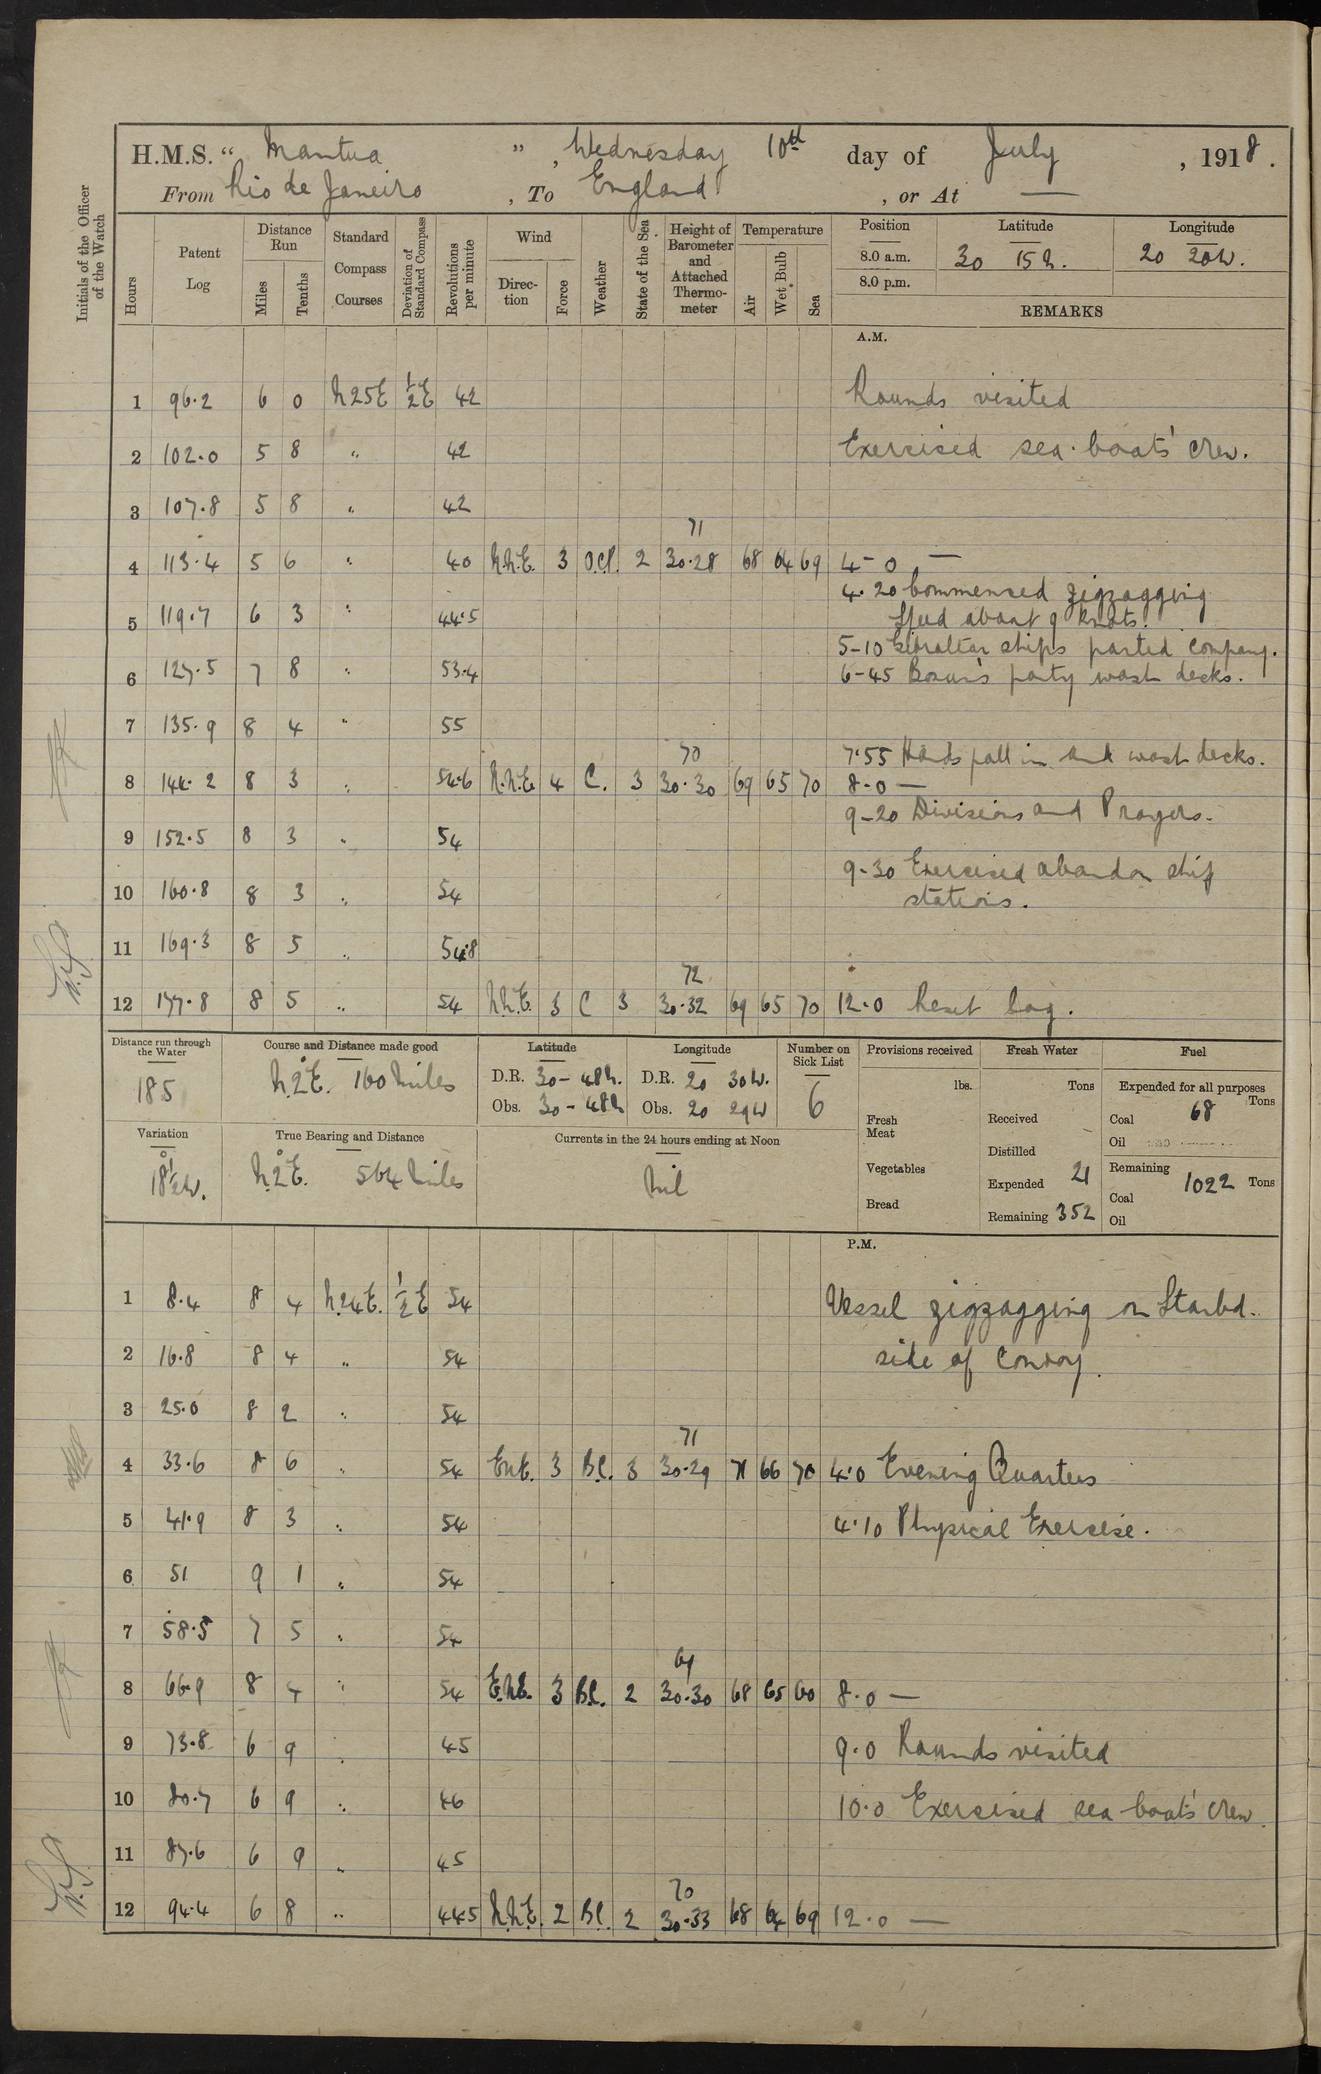 H.M.S. “ Mantua ” , Wednesday 10th day of July , 1918 .
From Rio de Janeiro , To England , or At —
Initials of the Officer of the Watch
Hours
Patent Log
Distance Run
Miles
Tenths
Standard Compass Courses
Deviation of Standard Compass
Revolutions per minute
Wind
Direction
Force
Weather
State of the Sea
Height of Barometer and Attached Thermometer
Temperature
Air
Wet Bulb
Sea
Position Latitude Longitude
8.0 a.m. 30 15 N. 20 20 W.
8.0 p.m.
REMARKS
A.M.
1 96.2 6 0 N25E ½E 42 Rounds visited
2 102.0 5 8 " 42 Exercised sea-boats' crew.
3 107.8 5 8 " 42
71
4 113.4 5 6 " 40 N.N.E. 3 O.C.P. 2 30.28 68 64 69 4-0 —
4.20 Commenced zigzagging
5 119.7 6 3 " 44.5 Speed about 9 knots.
5-10 Gibraltar ships parted company.
6 127.5 7 8 " 53.4 6-45 Bosun's party wash decks.
7 135.9 8 4 " 55
70 7.55 Hands fall in and wash decks.
8 144.2 8 3 " 54.6 N.N.E. 4 C. 3 30.30 69 65 70 8.0 —
9-20 Divisions and Prayers.
9 152.5 8 3 " 54
9-30 Exercised abandon ship
10 160.8 8 3 " 54 stations.
11 169.3 8 5 " 54.8
72
12 177.8 8 5 " 54 N.N.E. 3 C 3 30.32 69 65 70 12.0 Reset Log.
Distance run through the Water
185
Course and Distance made good
N.2°E. 160 Miles
Latitude
D.R. 30-48N.
Obs. 30-48N
Longitude
D.R. 20 30W.
Obs. 20 29W
Number on Sick List
6
Variation
18½°W.
True Bearing and Distance
N.2°E. 564 Miles
Currents in the 24 hours ending at Noon
Nil
Provisions received
lbs.
Fresh Meat
Vegetables
Bread
Fresh Water
Tons
Received
Distilled
Expended 21
Remaining 352
Fuel
Expended for all purposes
Tons
Coal 68
Oil
Remaining
Coal 1022 Tons
Oil
P.M.
1 8.4 8 4 N.24E. ½E 54 Vessel zigzagging on Starbd.
2 16.8 8 4 " 54 side of Convoy.
3 25.0 8 2 " 54
71
4 33.6 8 6 " 54 ENE. 3 B.C. 3 30.29 71 66 70 4.0 Evening Quarters
5 41.9 8 3 " 54 4.10 Physical Exercise.
6 51 9 1 " 54
7 58.5 7 5 " 54
69
8 66.9 8 4 " 54 E.N.E. 3 B.C. 2 30.30 68 65 60 8.0 —
9 73.8 6 9 " 45 9.0 Rounds visited
10 80.7 6 9 " 46 10.0 Exercised sea-boat's crew.
11 87.6 6 9 " 45
70
12 94.4 6 8 " 44.5 N.N.E. 2 B.C. 2 30.33 68 64 69 12.0 —